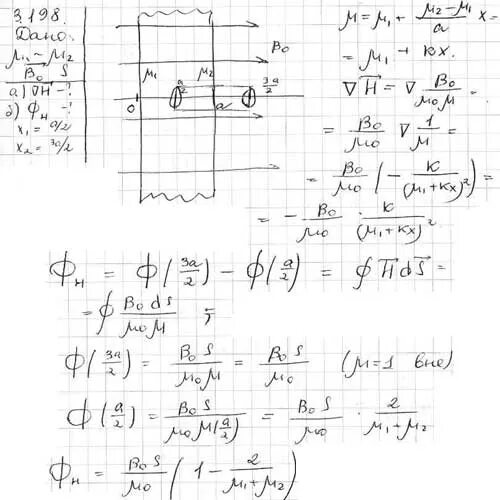 3.198.
Дано:
μ₁ – μ₂
B₀ S
а) ∇H⃗ – ?
б) Φн – ?
x₁ = a/2
x₂ = 3a/2
μ₁ μ₂ B₀
a/2 3a/2
0 a
μ = μ₁ + (μ₂ – μ₁)/a x =
= μ₁ + kx.
∇H⃗ = ∇ B₀/(μ₀μ) =
= B₀/μ₀ ∇ 1/μ =
= B₀/μ₀ (– k/(μ₁ + kx)²) =
= – B₀/μ₀ · k/(μ₁ + kx)²
Φн = Φ(3a/2) – Φ(a/2) = ∮ H⃗ dS⃗ =
= ∮ B₀ dS/(μ₀μ) ;
Φ(3a/2) = B₀S/(μ₀μ) = B₀S/μ₀ (μ=1 вне)
Φ(a/2) = B₀S/(μ₀μ(a/2)) = B₀S/μ₀ · 2/(μ₁+μ₂)
Φн = B₀S/μ₀ (1 – 2/(μ₁+μ₂))